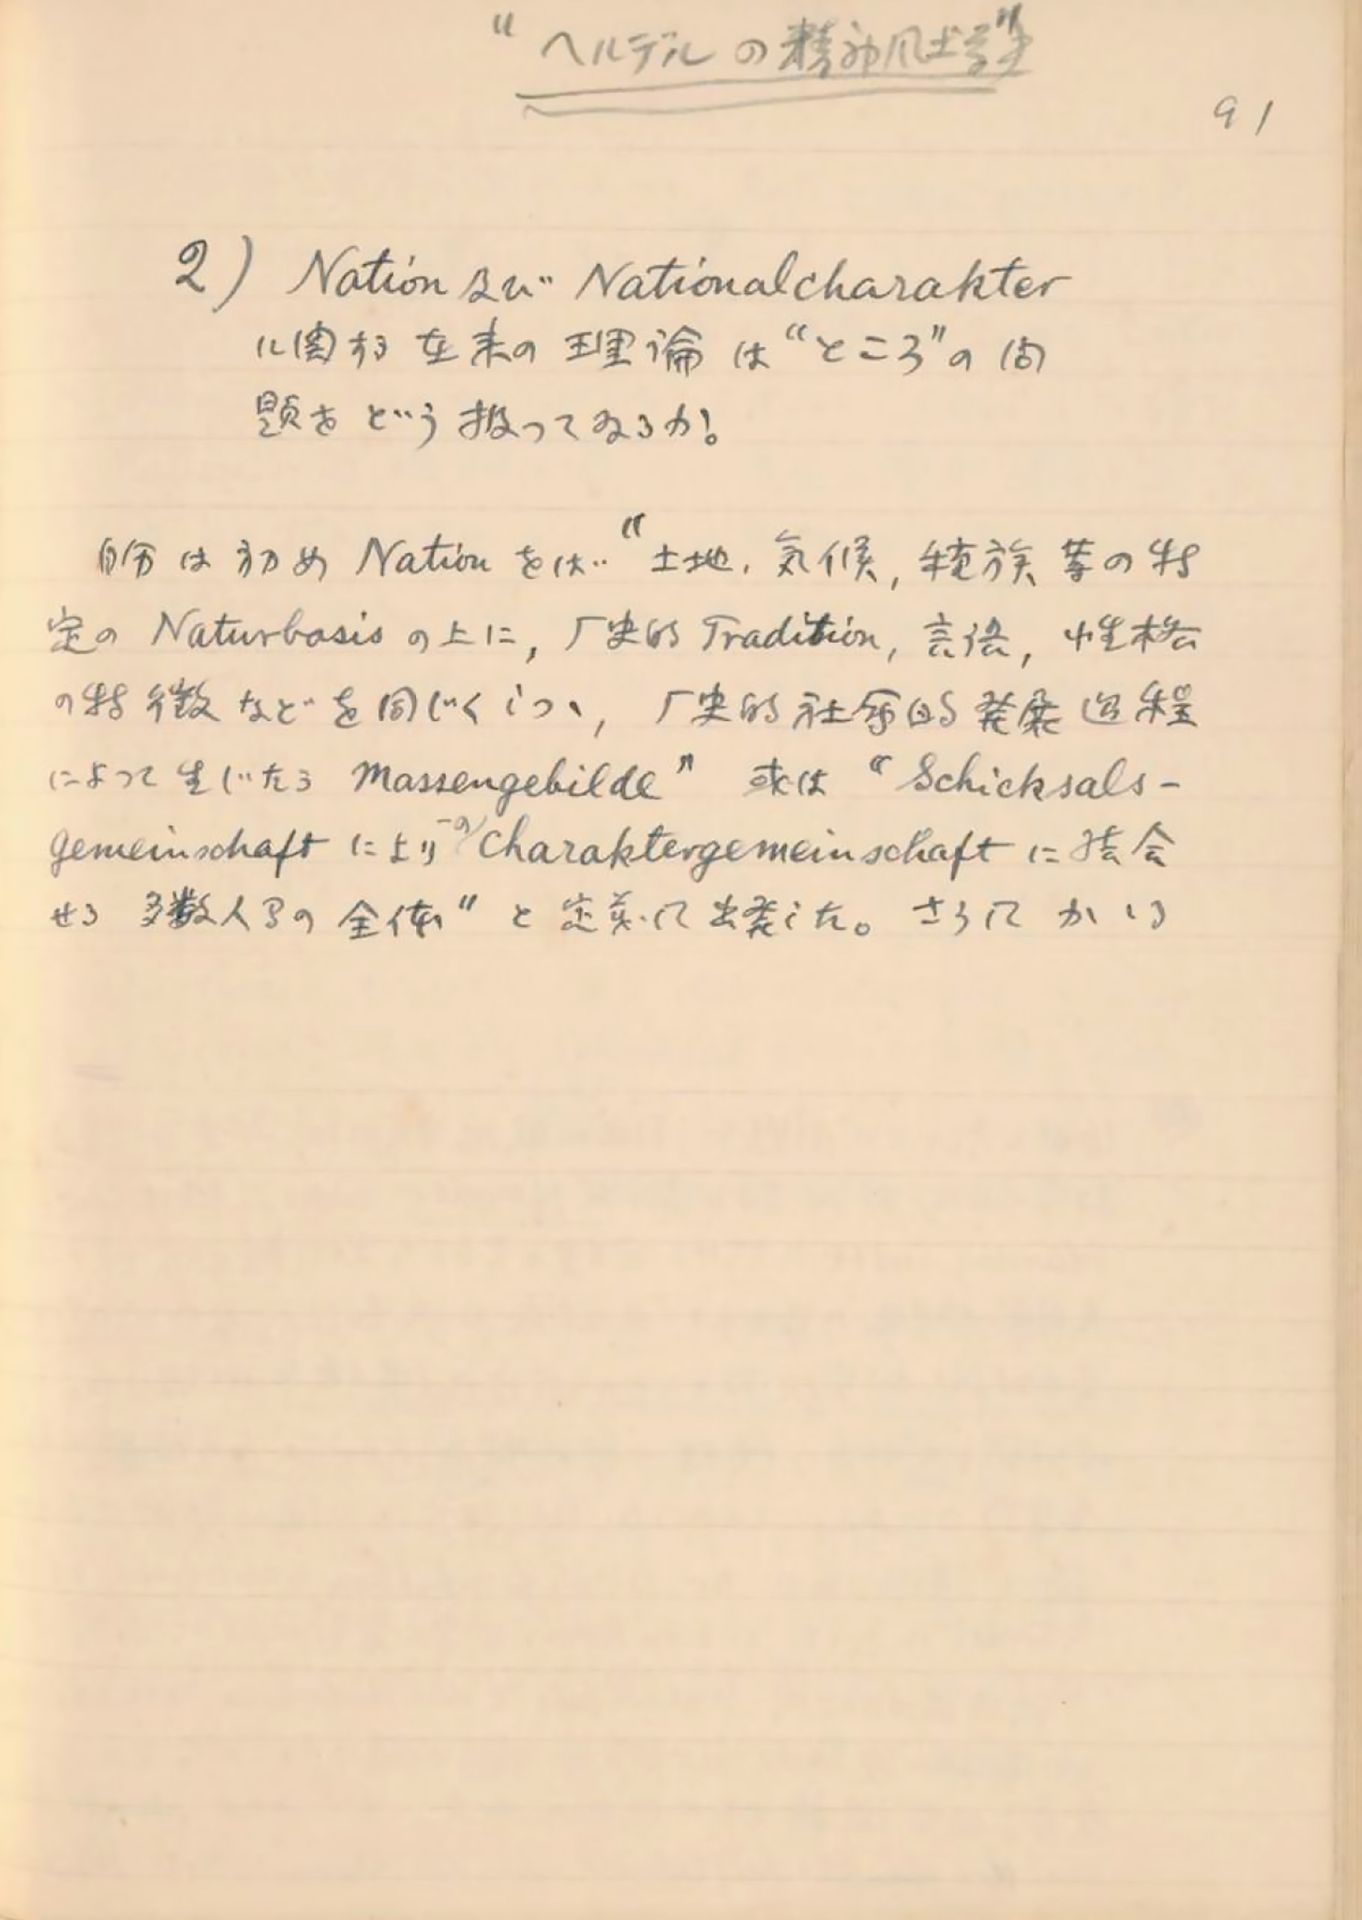 “ヘルデルの精神風土学”
91
2) Nation及び Nationalcharakter
に関する在来の理論は“ところ”の問
題をどう扱ってゐるか。
自分は初め Nation をば“土地、気候, 種族等の特
定の Naturbasis の上に, 厂史的 Tradition, 言語, 性格
の特徴などを同じくしつゝ, 厂史的社会的発展過程
によって生じたる Massengebilde” 或は “Schicksals-
gemeinschaft により一の Charaktergemeinschaft に結合
せる 多数人間の 全体” と定義して出発した。さうして かゝる